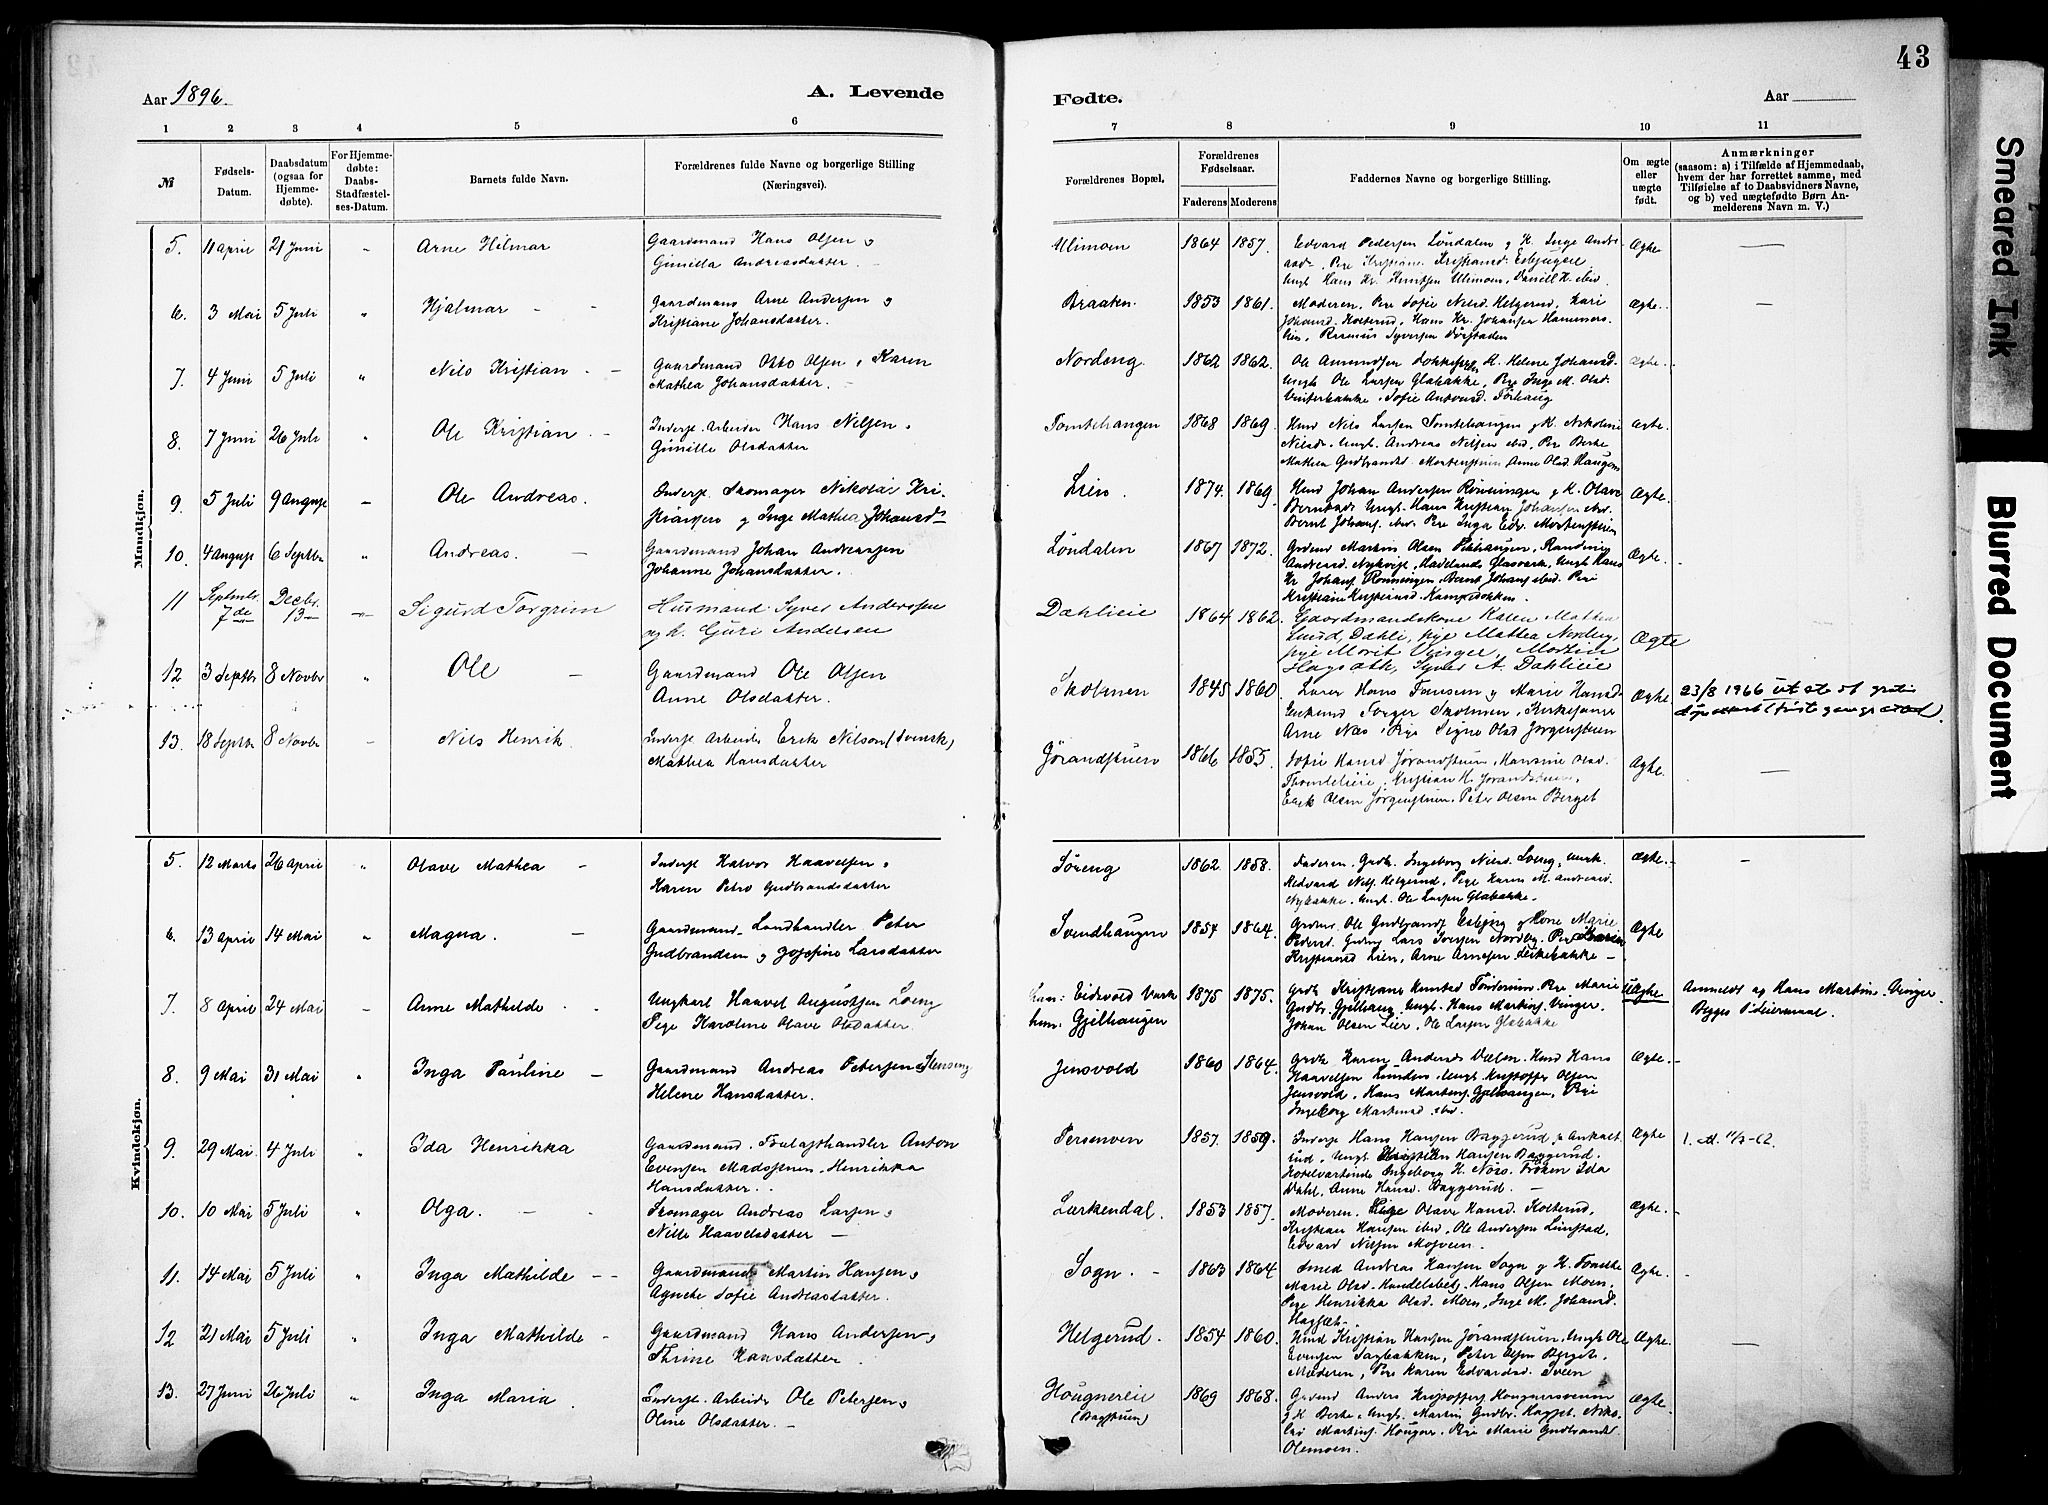 43
Aar 1896.
A. Levende
Fødte.
Aar
1 2 3 4 5 6 7 8 9 10 11
№
Fødsels-
Datum.
Daabsdatum
(ogsaa for
Hjemme-
døbte).
For Hjemme-
døbte:
Daabs-
Stadfæstel-
ses-Datum.
Barnets fulde Navn.
Forældrenes fulde Navne og borgerlige Stilling
(Næringsvei).
Forældrenes Bopæl.
Forældrenes
Fødselsaar.
Faderens Moderens
Faddernes Navne og borgerlige Stilling.
Om ægte
eller
uægte
født.
Anmærkninger
(saasom: a) i Tilfælde af Hjemmedaab,
hvem der har forrettet samme, med
Tilføielse af to Daabsvidners Navne,
og b) ved uægtefødte Børn An-
melderens Navn m. V.)
Mandkjøn.
5. 11 April 21 Juni " Arne Hilmar
Gaardmand Hans Olsen og
Gunilla Andreasdatter.
Ulimoen 1864 1857.
Edvard Pedersen Løndalen og K. Inge Andre-
Ægte
6. 3 Mai 5 Juli " Hjalmar
Gaardmand Arne Andersen og
Kristiane Johansdatter.
Braaten. 1853 1861.
Moderen, Pige Sofie Nilsd. Helgerud, Kari
Johansd. Kolterud, Hans Kr. Johansen Hammers-
lien, Rasmus Syversen
Ægte.
7. 4 Juni 5 Juli " Nils Kristian
Gaardmand Otto Olsen, Karen
Mathea Johansdatter.
Nordeng. 1862 1862.
Ole Amundsen K. Helene Johansd.
Ungk. Ole Larsen Glabakke, Pige Inge M. Olsd.
Vinterbakke, Sofie
Ægte.
8. 7 Juni 26 Juli " Ole Kristian
Inderst. Arbeider Hans Nilsen og
Gunille Olsdatter
Tomtehaugen 1868 1869.
Husmd Nils Larsen Tomtehaugen og K. Nikoline
Nilsdr. Ungk. Andreas Nilsen ibid. Pige Berte
Mathea Gudbrandsd. Mortenstuen Anne Olsd. Haugen
Ægte.
9. 5 Juli 9 August — Ole Andreas.
Inderst. Skomager Nikolai Kri-
stiansen og Inge Mathea Johansd.
Lien. 1874. 1869.
Husmd Johan Andersen Rønningen og K. Olave
Berntsd. Ungk. Hans Kristian Johansen ibid.
Bernt Johans. ibid. Pige Inga Edv. Mortenstuen
Ægte.
10. 4 August 6 Septbr " Andreas.
Gaardmand Johan Andreassen
Johanne Johansdatter.
Løndalen 1867 1872.
Grdmd Martin Olsen Pekhaugen, Randine
Andreasd. Nykvist, Hadelands Glasværk, Ungk Hans
Kr. Johans. Rønningen, Bernt Johans. ibid. Pige
Kristiane Kristiansd. Kampesbakken.
Ægte.
11 Septembr. 7de Decbr. 13 Sigurd Torgrim
Husmand Syver Anderssen
og h. Guri Andersen
Dæhlieie 1864 1862.
Gaardmandskone Karen Mathea
Lund, Dæhli, pige Mathea Nordby,
pige Marit Vinger, Martin
Hagsæth, Syver A. Dæhlieie
Ægte
12 3 Septbr 8 Novbr " Ole
Gaardmand Ole Olsen
Anne Olsdatter.
Skolmen 1845 1860.
Lærer Hans Fransen og Marie Hansd.
Enkemd Torger Skolmen, Kirkesanger
Arne Næs, Pige Signe Olsd Jørgenstuen
Ægte. 23/8 1966 utstedt gratis
13. 18 Septbr 8 Novbr — Nils Henrik.
Inderst. Arbeider Erik Nilson (Svensk)
Mathea Hansdatter
Jørandstuen 1866 1855.
Sofie Hansd. Jørandstuen, Hansine Olsd.
Thondelieie, Kristian H. Jørandstuen,
Erik Olsen Jørgenstuen, Peter Olsen Berget
Ægte. —
Kvindekjøn.
5. 12 Marts 26 April " Olave Mathea
Inderst Halvor Haavelsen og
Karen Petra Gudbrandsdatter
Søreng 1862. 1858.
Faderen. Grdk. Ingeborg Nilsd. Loeng, Ungk.
Edvard Nils. Helgerud, Pige Karen M. Andreasd.
Nybakke. Ungk. Ole Larsen Glabakke.
Ægte. —
6. 13 April 14 Mai " Magna.
Gaardmand. Landhandler Peter
Gudbrandsen og Josefine Larsdatter
Svendhaugen 1857 1864.
Grdm. Ole Gudbrands. Esbjug og Kone Marie
Pedersd. Lars Iversen Nordby. Pige Karen
Kristiansd Lien, Arne Arnesen
Ægte
7. 8 April 24 Mai — Anne Mathilde
Ungkarl Haavel Augustsen Loeng
Pige Karoline Olave Olsdatter.
han: Eidsvold Værk
hun: Gjelhaugen
1875 1875.
Grdk Kristiane Knutsd Pige Marie
Gudbr. Gjelhaug, Ungk. Hans Martins. Vinger.
Johan Olsen Lier, Ole Larsen Glabakke
Uægte Anmeldt af Hans Martins. Vinger.
Begges 1 leiermaal.
8. 9 Mai 31 Mai " Inga Pauline
Gaardmand Andreas Petersen
Helene Hansdatter.
Jensvold 1860 1864.
Grdk Karen Andersd. Dælen. Husmd Hans
Haavelsen Lunden, Ungk. Kristoffer Olsen
Jensvold, Hans Martins. Gjelhaugen, Pige
Ingeborg Martinsd. ibid.
Ægte.
9. 29 Mai 4 Juli " Ida Henrikka
Gaardmand. Trælasthandler Anton
Evensen Madsstuen. Henrikka
Hansdatter.
Persenven 1857. 1859.
Inderst Hans Hansen Baggerud,
Ungk Kristian Hansen Baggerud.
Hotelværtinde Ingeborg H. Næs. Frøken Ida
Dahl, Anne Hansd. Baggerud.
Ægte 1. A. 11/3-62.
10. 10 Mai 5 Juli " Olga.
Skomager Andreas Larsen og
Nille Haavelsdatter
Lærkendal. 1853 1857.
Moderen. Pige Olave Hansd. Kolterud,
Kristian Hansen ibid, Ole Andersen Lunstad,
Edvard Nilsen Mosveen.
Ægte.
11. 14 Mai 5 Juli " Inga Mathilde
Gaardmand Martin Hansen og
Agnethe Sofie Andreasdatter.
Sogn. 1863 1864
Smed Andreas Hansen Sogn og K.
Marie Olsd. Handelsbetj. Hans Olsen Moen,
Pige Henrikka Olsd. Moen, Inge M. Johansd.
Hagsæt.
Ægte.
12 21 Mai 5 Juli " Inga Mathilde
Gaardmand Hans Andersen og
Thrine Hansdatter.
Helgerud. 1854 1860.
Husmd Kristian Hansen Jørandstuen, Ungk Ole
Evensen Sagbakken, Peter Olsen Berget.
Moderen, Pige Karen Edvardsd. Sveen
Ægte. —
13. 27 Juni 26 Juli " Inga Maria
Inderst. Arbeider Ole Petersen og
Oline Olsdatter.
Hougnereie
(Bagstuen)
1869 1868.
Grdmd Anders Kristoffers. Hougnersveen
og K Berte, Ungk. Martin Gudbr. Hagset. Niko-
lai Martins. Hougner, Pige Marie Gudbrandsd
Olemoen.
Ægte.
Smeared Ink
Blurred Document